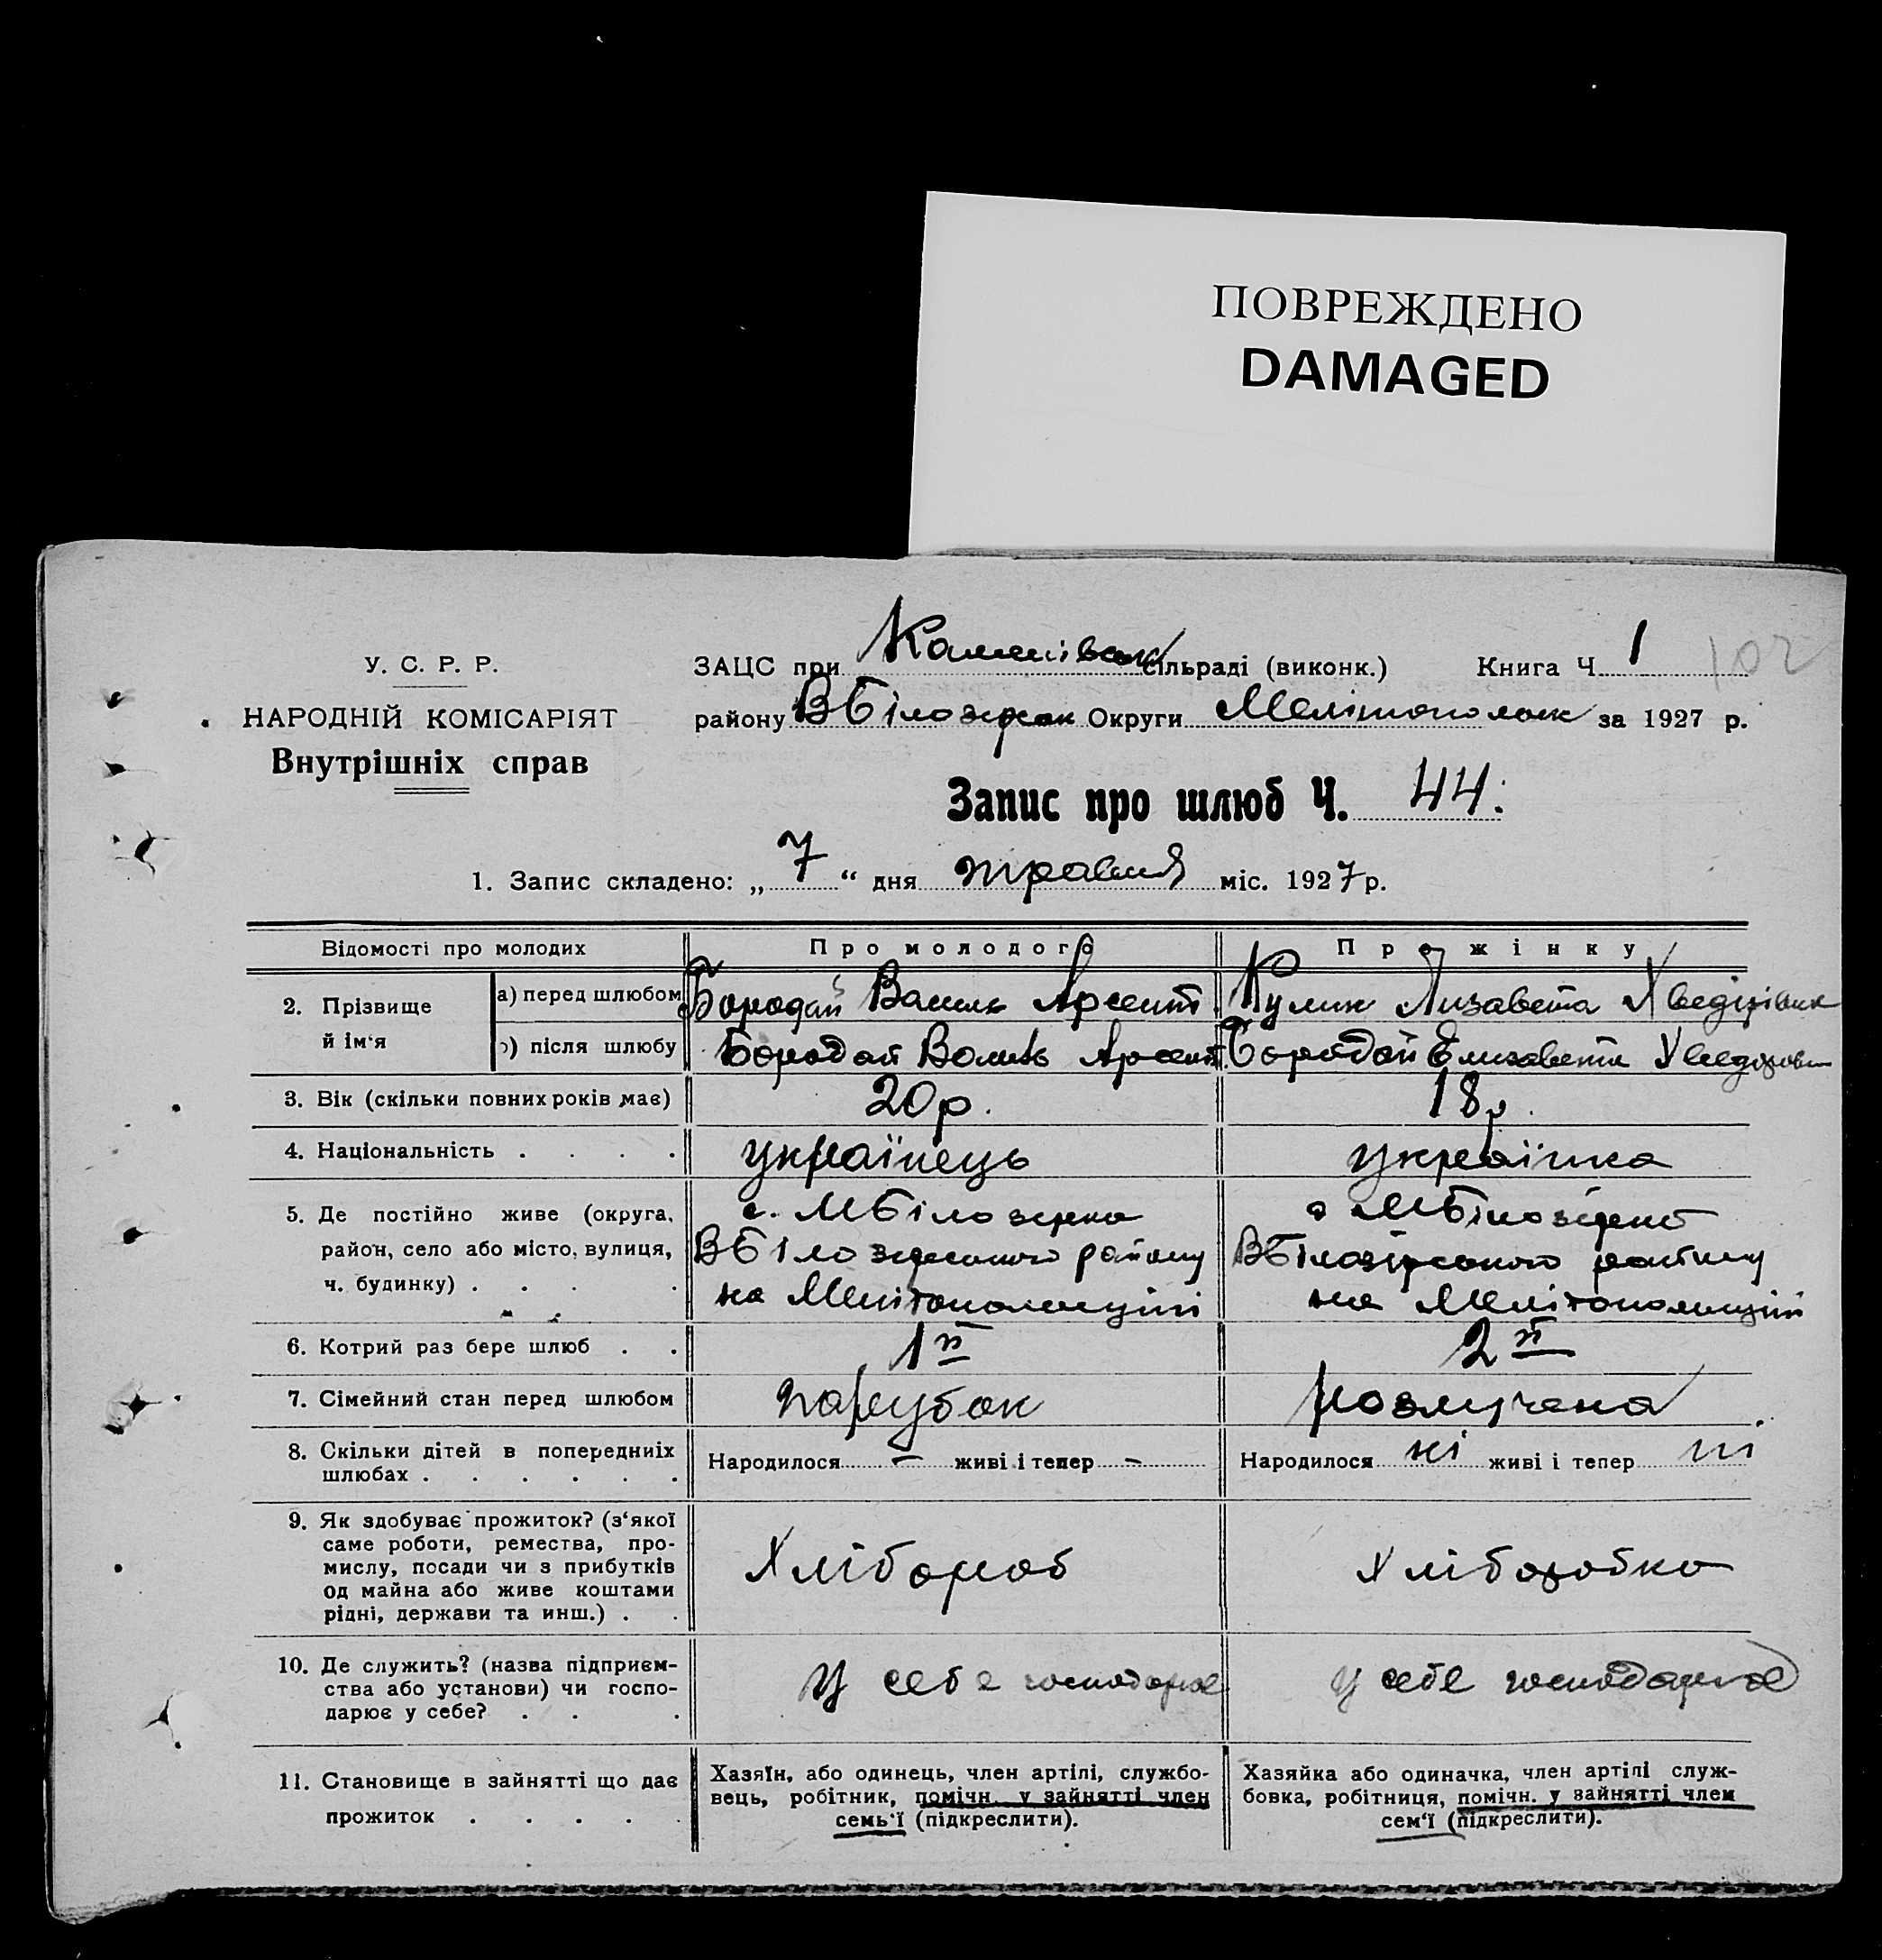 ПОВРЕЖДЕНО
DAMAGED
У. С. Р. Р.
НАРОДНІЙ КОМІСАРІЯТ
Внутрішніх справ
ЗАЦС при сільраді (виконк.) Книга Ч. 1 102
району ВБілозерск Округи Мелітопольск за 1927 р.
Запис про шлюб Ч. 44.
1. Запис складено: „ 7 “ дня травня міс. 1927 р.
Відомості про молодих Про молодого Про жінку
2. Прізвище й ім‘я
а) перед шлюбом Бородай Василь Арсент. Кулик Лизавета Хведірівна
б) після шлюбу Бородай Василь Арсент. Бородай Елизавета
3. Вік (скільки повних років має) 20 р. 18 р.
4. Національність . . . . українець українка
5. Де постійно живе (округа,
район, село або місто, вулиця,
ч. будинку) . . . .
с. МБілозерка
ВБілозерського району
на Мелітопольщині
с МБілозерка
ВБілозерського району
на Мелітопольщині
6. Котрий раз бере шлюб . . 1й 2й
7. Сімейний стан перед шлюбом парубок розлучена
8. Скільки дітей в попередниіх
шлюбах . . . . . .
Народилося — живі і тепер –
Народилося ні живі і тепер ні
9. Як здобуває прожиток? (з‘якої
саме роботи, ремества, про-
мислу, посади чи з прибутків
од майна або живе коштами
рідні, держави та инш.) . .
Хлібороб
Хліборобка
10. Де служить? (назва підприєм-
ства або установи) чи госпо-
дарює у себе? . . .
У себе господарює
у себе господарює
11. Становище в зайнятті що дає
прожиток . . . . .
Хазяїн, або одинець, член артілі, службо-
вець, робітник, помічн. у зайнятті член
семь‘ї (підкреслити).
Хазяйка або одиначка, член артілі служ-
бовка, робітниця, помічн. у зайнятті член
сем‘ї (підкреслити).